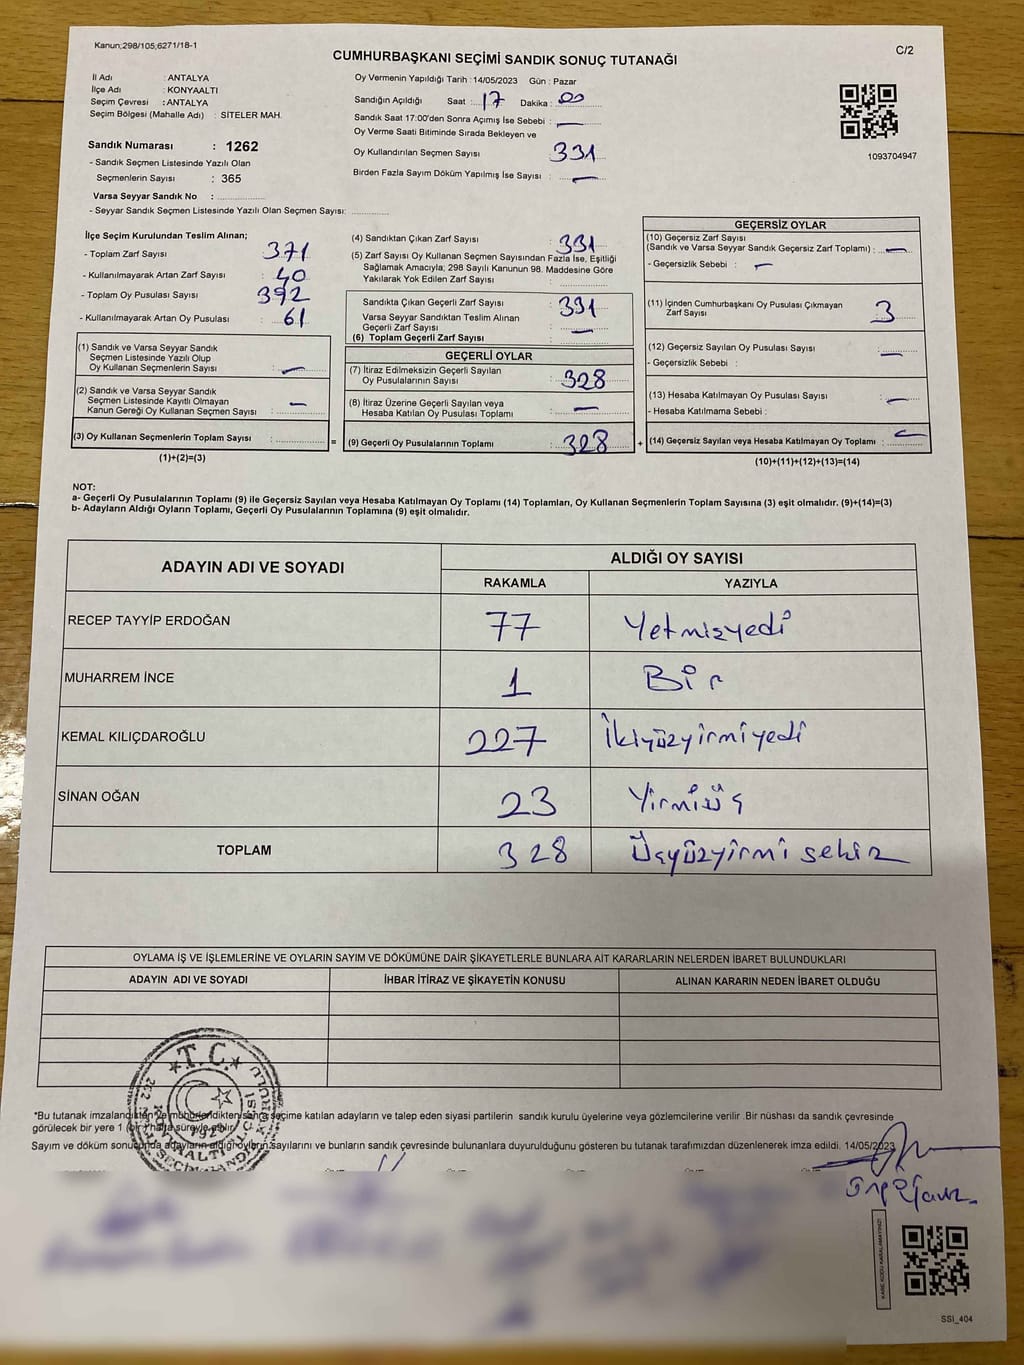 Kanun;298/105;6271/18-1
C/2
CUMHURBAŞKANI SEÇİMİ SANDIK SONUÇ TUTANAĞI
İl Adı : ANTALYA
İlçe Adı : KONYAALTI
Seçim Çevresi : ANTALYA
Seçim Bölgesi (Mahalle Adı) : SİTELER MAH.
Sandık Numarası : 1262
- Sandık Seçmen Listesinde Yazılı Olan
Seçmenlerin Sayısı : 365
Varsa Seyyar Sandık No :
- Seyyar Sandık Seçmen Listesinde Yazılı Olan Seçmen Sayısı:
Oy Vermenin Yapıldığı Tarih : 14/05/2023 Gün : Pazar
Sandığın Açıldığı Saat : 17 Dakika : 00
Sandık Saat 17:00'den Sonra Açımış İse Sebebi : —
Oy Verme Saati Bitiminde Sırada Bekleyen ve
Oy Kullandırılan Seçmen Sayısı 331
Birden Fazla Sayım Döküm Yapılmış İse Sayısı : —
1093704947
İlçe Seçim Kurulundan Teslim Alınan;
- Toplam Zarf Sayısı : 371
- Kullanılmayarak Artan Zarf Sayısı : 40
- Toplam Oy Pusulası Sayısı : 392
- Kullanılmayarak Artan Oy Pusulası : 61
(1) Sandık ve Varsa Seyyar Sandık
Seçmen Listesinde Yazılı Olup
Oy Kullanan Seçmenlerin Sayısı : —
(2) Sandık ve Varsa Seyyar Sandık
Seçmen Listesinde Kayıtlı Olmayan
Kanun Gereği Oy Kullanan Seçmen Sayısı : —
(3) Oy Kullanan Seçmenlerin Toplam Sayısı : =
(1)+(2)=(3)
(4) Sandıktan Çıkan Zarf Sayısı : 331
(5) Zarf Sayısı Oy Kullanan Seçmen Sayısından Fazla İse, Eşitliği
Sağlamak Amacıyla; 298 Sayılı Kanunun 98. Maddesine Göre
Yakılarak Yok Edilen Zarf Sayısı :
Sandıkta Çıkan Geçerli Zarf Sayısı : 331
Varsa Seyyar Sandıktan Teslim Alınan
Geçerli Zarf Sayısı : —
(6) Toplam Geçerli Zarf Sayısı :
GEÇERLİ OYLAR
(7) İtiraz Edilmeksizin Geçerli Sayılan
Oy Pusulalarının Sayısı : 328
(8) İtiraz Üzerine Geçerli Sayılan veya
Hesaba Katılan Oy Pusulası Toplamı : —
(9) Geçerli Oy Pusulalarının Toplamı : 328 +
GEÇERSİZ OYLAR
(10) Geçersiz Zarf Sayısı
(Sandık ve Varsa Seyyar Sandık Geçersiz Zarf Toplamı) : —
- Geçersizlik Sebebi : —
(11) İçinden Cumhurbaşkanı Oy Pusulası Çıkmayan
Zarf Sayısı : 3
(12) Geçersiz Sayılan Oy Pusulası Sayısı : —
- Geçersizlik Sebebi :
(13) Hesaba Katılmayan Oy Pusulası Sayısı : —
- Hesaba Katılmama Sebebi :
(14) Geçersiz Sayılan veya Hesaba Katılmayan Oy Toplamı : —
(10)+(11)+(12)+(13)=(14)
NOT:
a- Geçerli Oy Pusulalarının Toplamı (9) ile Geçersiz Sayılan veya Hesaba Katılmayan Oy Toplamı (14) Toplamları, Oy Kullanan Seçmenlerin Toplam Sayısına (3) eşit olmalıdır. (9)+(14)=(3)
b- Adayların Aldığı Oyların Toplamı, Geçerli Oy Pusulalarının Toplamına (9) eşit olmalıdır.
ADAYIN ADI VE SOYADI ALDIĞI OY SAYISI
RAKAMLA YAZIYLA
RECEP TAYYİP ERDOĞAN 77 Yetmişyedi
MUHARREM İNCE 1 Bir
KEMAL KILIÇDAROĞLU 227 İkiyüzyirmiyedi
SİNAN OĞAN 23 Yirmiüç
TOPLAM 328 Üçyüzyirmi sekiz
OYLAMA İŞ VE İŞLEMLERİNE VE OYLARIN SAYIM VE DÖKÜMÜNE DAİR ŞİKAYETLERLE BUNLARA AİT KARARLARIN NELERDEN İBARET BULUNDUKLARI
ADAYIN ADI VE SOYADI İHBAR İTİRAZ VE ŞİKAYETİN KONUSU ALINAN KARARIN NEDEN İBARET OLDUĞU
T.C.
*Bu tutanak imzalandıktan ve mühürlendikten sonra seçime katılan adayların ve talep eden siyasi partilerin sandık kurulu üyelerine veya gözlemcilerine verilir .Bir nüshası da sandık çevresinde
görülecek bir yere 1 (bir) hafta süreyle asılır.
Sayım ve döküm sonucunda adayların aldığı oyların sayılarını ve bunların sandık çevresinde bulunanlara duyurulduğunu gösteren bu tutanak tarafımızdan düzenlenerek imza edildi. 14/05/2023
KARE KODU KARALAMAYINIZ!
SSI_404